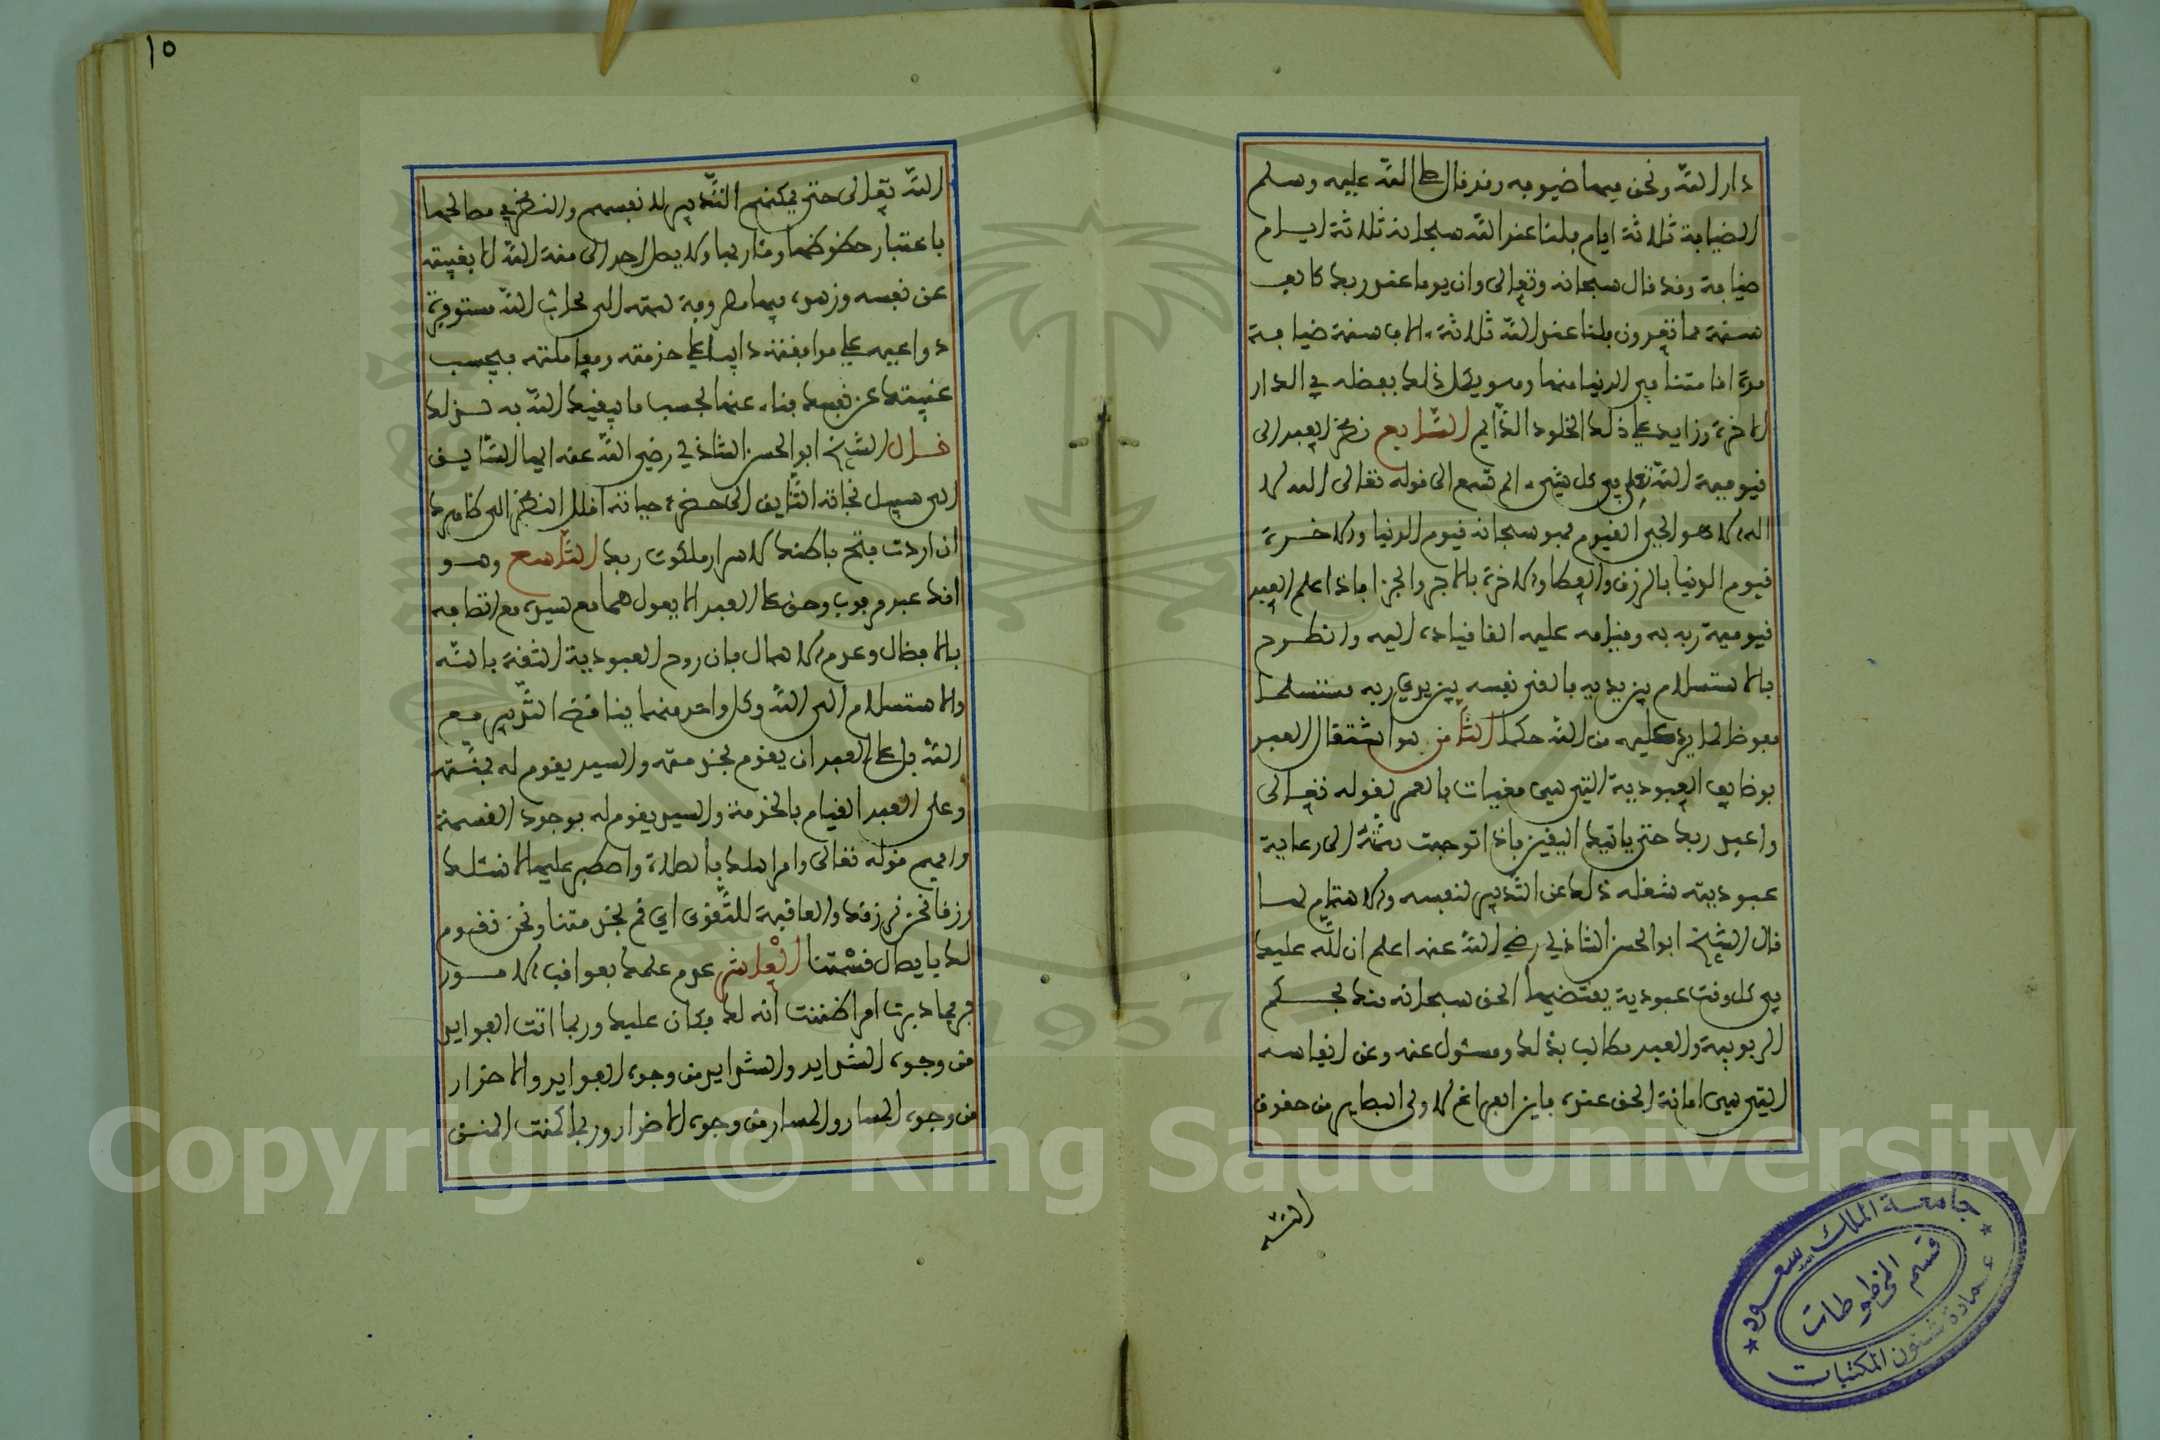 دار الله ونحن فيها ضيوفه وقد قال صلى الله عليه وسلم
الضيافة ثلاثة ايام فلنا عند الله سبحانه ثلاثة ايام
ضيافة وقد قال سبحانه وتعالى وان يوما عند ربك كالف
سنة مما تعدون فلنا عند الله ثلاثة الاف سنة ضيافة
مدة اقامتنا في الدنيا منها وهو يكمل ذلك بفضله في الدار
الاخرة وزايد على ذلك الخلود الدايم السابع نظر العبد الى
قيومية الله تعلى في كل شيء الم تسمع الى قوله تعالى الله لا
اله الا هو الحي القيوم فهو سبحانه قيوم الدنيا والاخرة
قيوم الدنيا بالرزق والعطا والاخرة بالاجر والجزا فاذا علم العبد
قيومية ربه به وقيامه عليه القى قياده اليه وانطرح
بالاستسلام بين يديه فالقى نفسه بين يدي ربه مستسلما
مفوضا لما يرد عليه من الله حكما الثامن هو اشتغال العبد
بوظايف العبودية التي هي مغيات بالعمر لقوله تعالى
واعبد ربك حتى ياتيك اليقين فاذا توجهت همته الى رعاية
عبوديته شغله ذلك عن التدبير لنفسه والاهتمام لها
قال الشيخ ابو الحسن الشاذلي رضي الله عنه اعلم ان لله عليك
في كل وقت عبودية يقتضيها الحق سبحانه منك بحكم
الربوبية والعبد مطالب بذلك ومسئول عنه وعن انفاسه
التي هي امانة الحق عنده فاين الفراغ لاولي البصاير من حقوق
الله
١٥
الله تعالى حتى يمكنهم التدبير لانفسهم والنظر في مصالحها
باعتبار حظوظها ومئاربها ولا يصل احد الى منة الله الا بغيبته
عن نفسه وزهده فيها مصروفة همته الى محاب الله متوفرة
دواعيه على موافقته دايبا على خدمته ومعاملته فبحسب
غيبتك عن نفسك فناء عنها بحسب ما يبقيك الله به لذلك
قال الشيخ ابو الحسن الشاذلي رضي الله عنه ايها السايق
الى سبيل نجاته الشايق الى حضرة جنابه اقلل النظر الى ظاهرك
ان اردت فتح باطنك لاسرار ملكوت ربك التاسع وهو
انك عبد مربوب وحق على العبد الا يعول هما مع سيده مع اتصافه
بالافضال وعدم الاهمال فان روح العبودية الثقة بالله
والاستسلام الى الله وكل واحد منهما يناقض التدبير مع
الله بل على العبد ان يقوم بخدمته والسيد يقوم له بمنته
وعلى العبد القيام بالخدمة والسيد يقوم له بوجود القسمة
وافهم قوله تعالى وامر اهلك بالصلاة واصطبر عليها لا نسئلك
رزقا نحن نرزقك والعاقبة للتقوى اي قم بخدمتنا ونحن نقوم
لك بايصال قسمتنا العاشر عدم علمك بعواقب الامور
فربما دبرت امرا ظننت انه لك فكان عليك وربما اتت الفوايد
من وجوه الشدايد والشدايد من وجوه الفوايد والاضرار
من وجوه المسار والمسار من وجوه الاضرار وربما كمنت المنن
جامعة الملك سعود
قسم المخطوطات
عمادة شئون المكتبات
1957
Copyright © King Saud University